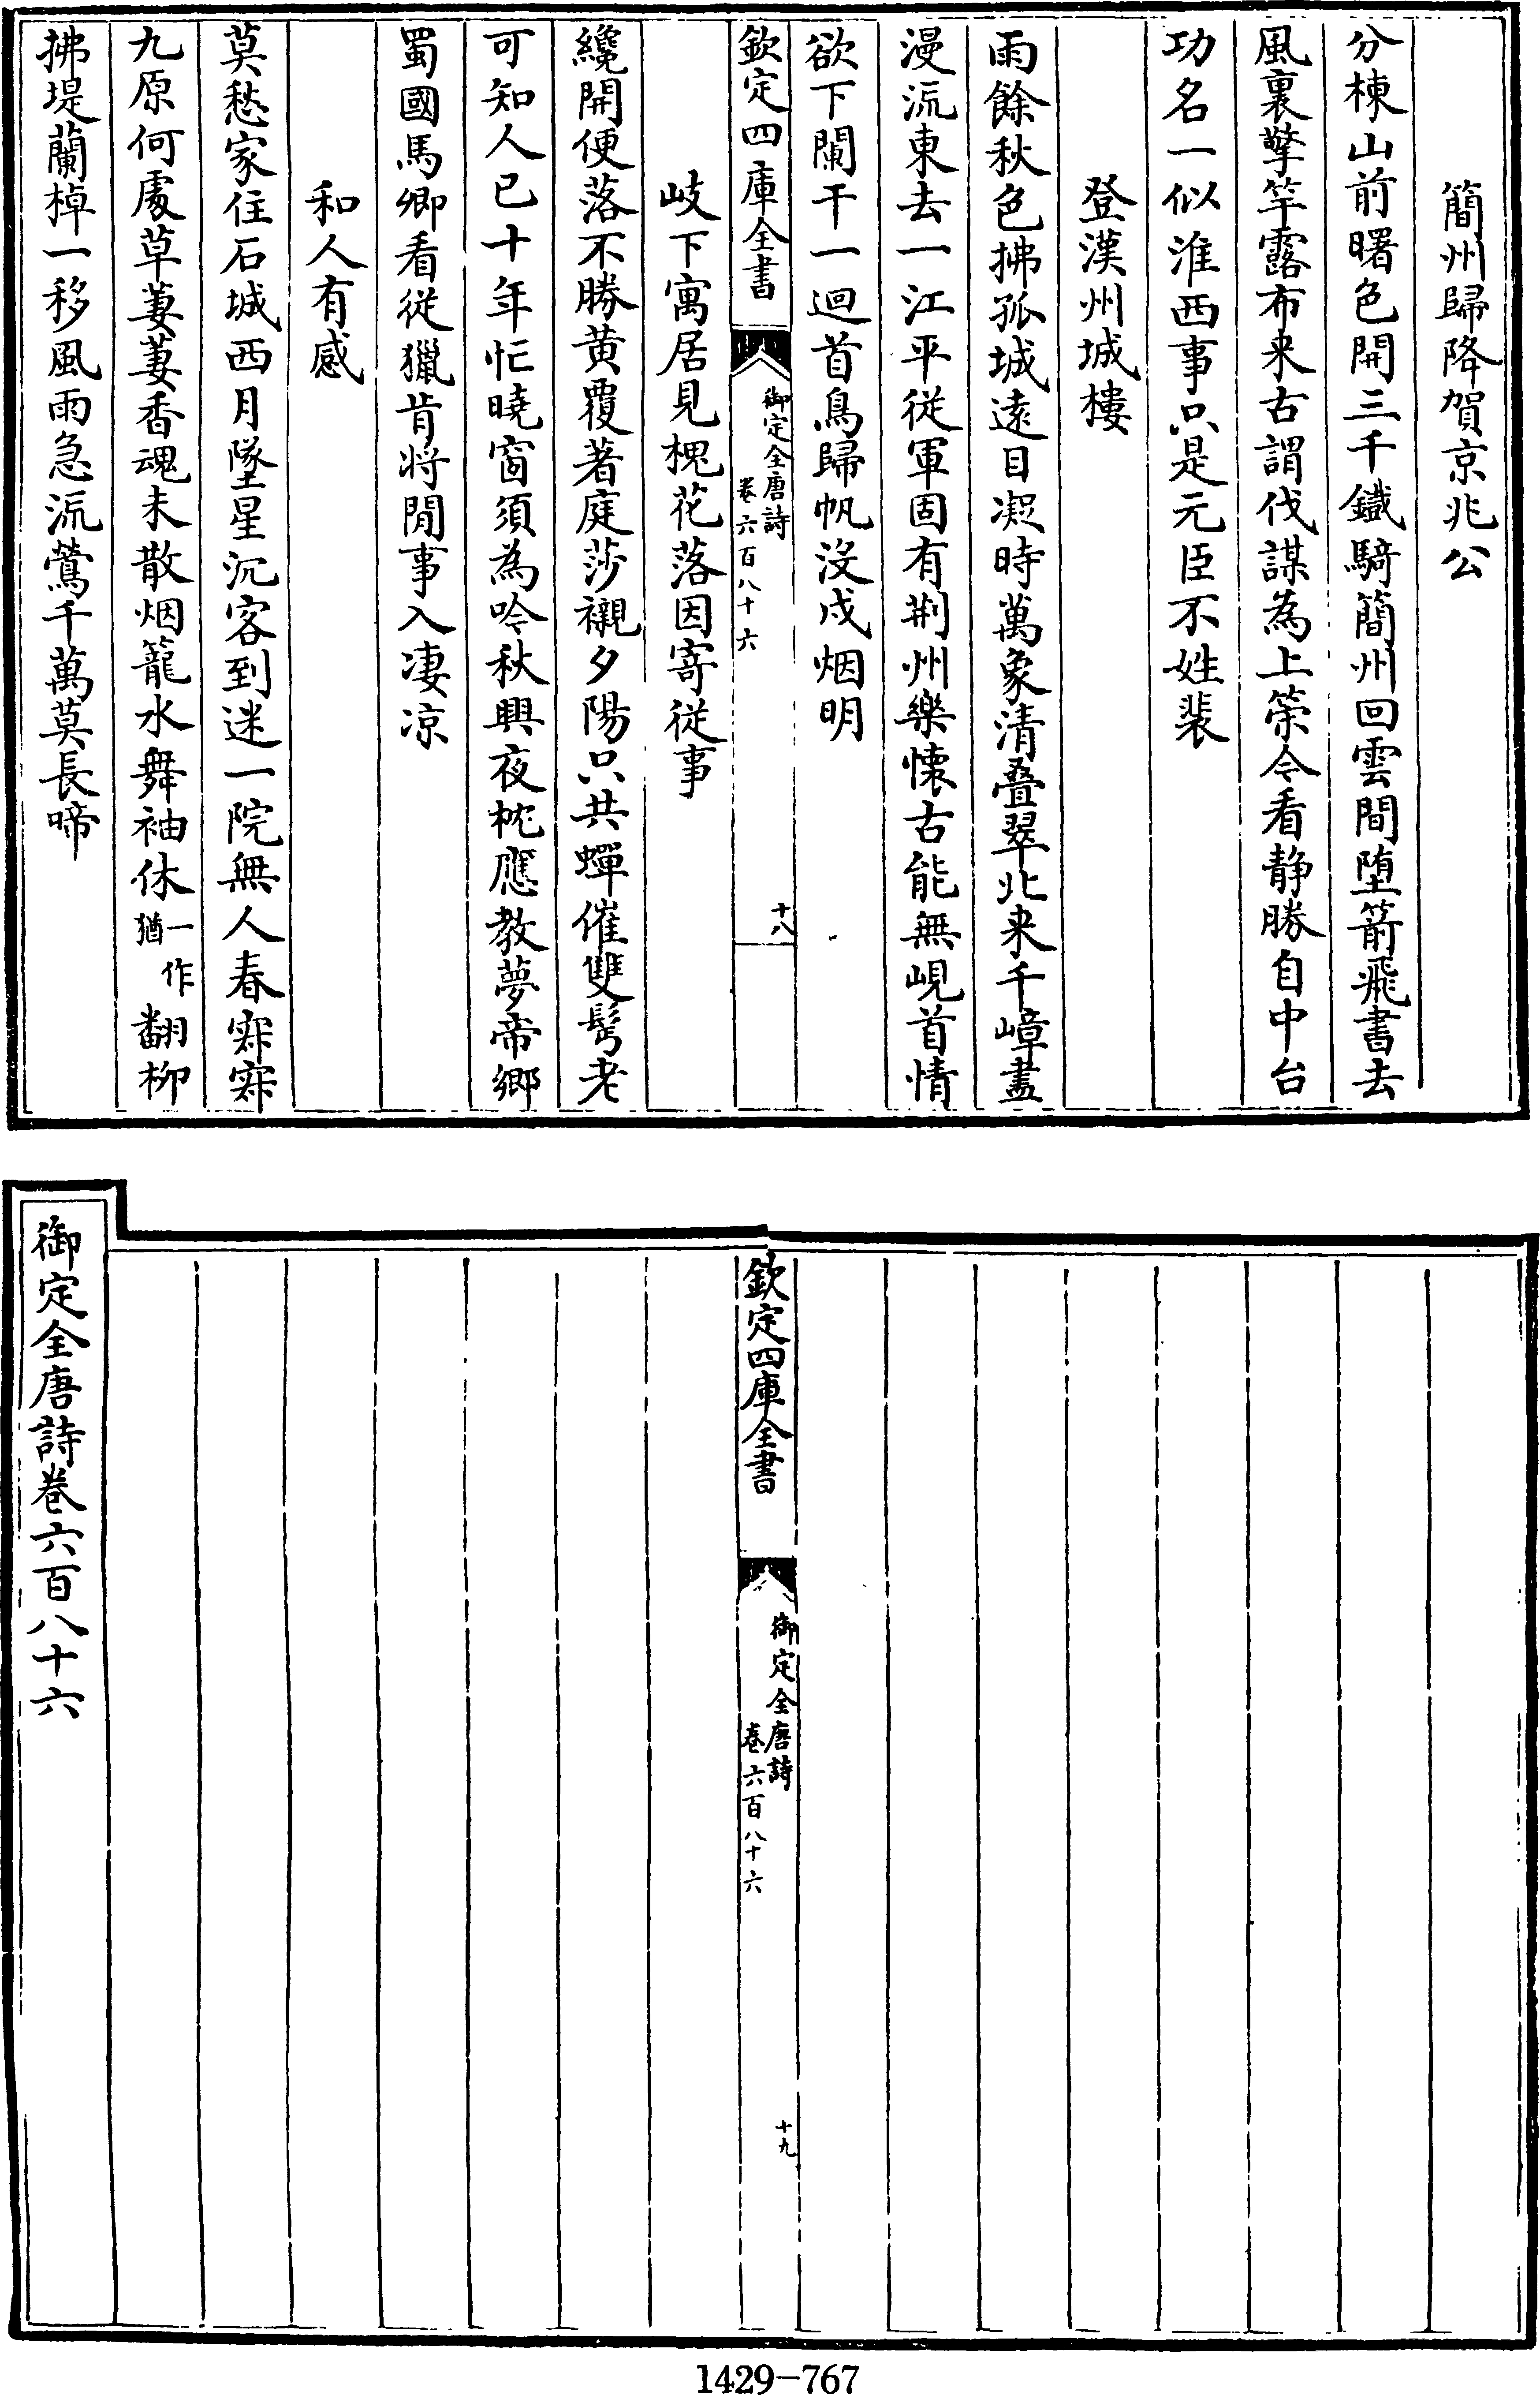 簡州歸降賀京兆公
分棟山前曙色開三千鐵騎簡州回雲間堕箭飛書去
風裏擎竿露布来古謂伐謀為上策今看静勝自中台
功名一似淮西事只是元臣不姓裴
登漢州城樓
雨餘秋色拂孤城遠目凝時萬象清叠翠北来千嶂盡
漫流東去一江平從軍固有荆州樂懐古能無峴首情
欲下闌干一迴首鳥歸帆沒戍烟明
欽定四庫全書
御定全唐詩
卷六百八十六
十八
岐下寓居見槐花落因寄從事
纔開便落不勝黄覆著庭莎襯夕陽只共蟬催雙鬂老
可知人已十年忙曉窗須為吟秋興夜枕應教夢帝鄉
蜀國馬卿看從獵肯将閒事入凄凉
和人有感
莫愁家住石城西月墜星沉客到迷一院無人春寂寂
九原何處草萋萋香魂未散烟籠水舞袖休一作猶翻柳
拂堤蘭棹一移風雨急流鶯千萬莫長啼
欽定四庫全書
御定全唐詩
卷六百八十六
十九
御定全唐詩卷六百八十六
1429-767